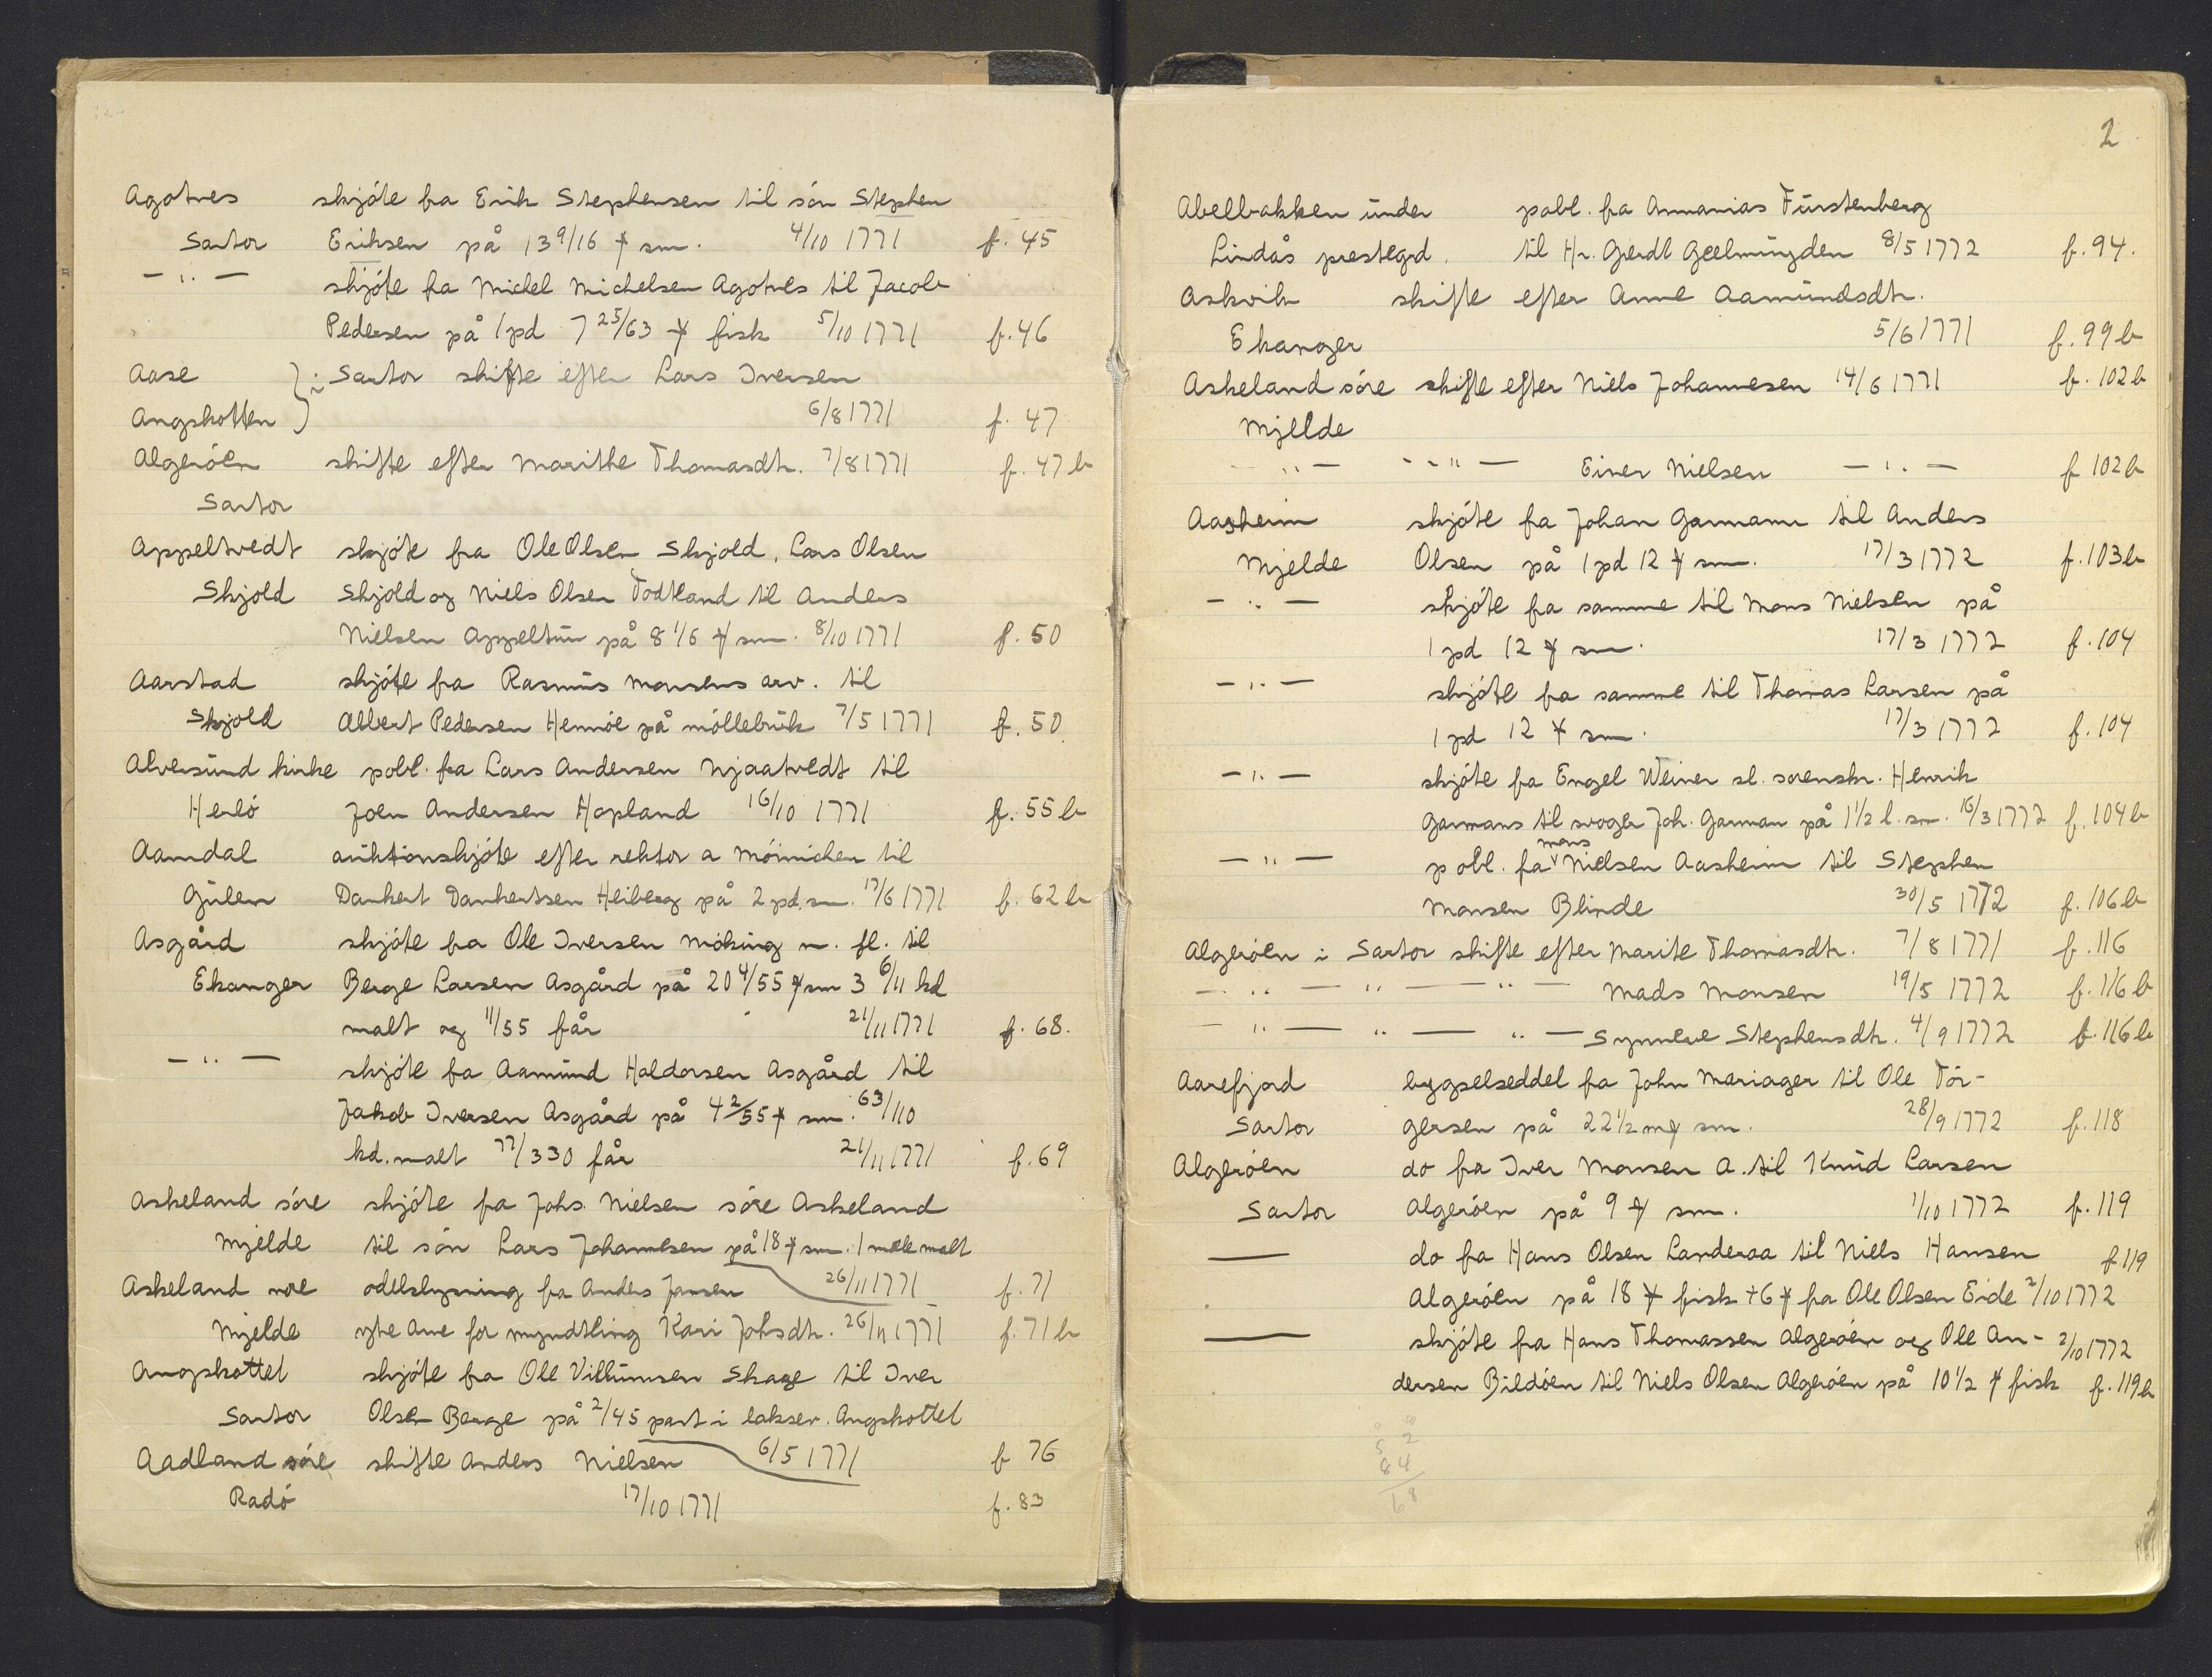 Agotnes skjöte fra Erik Stephensen til sön Stephen
Sartor Eriksen på 13 9/16 ℔ sm. 4/10 1771 f. 45
— " — skjöte fra Michel Michelsen Agotnes til Jacob
Pedersen på 1 pd 7 25/63 ℔ fisk 5/10 1771 f. 46
Aase } i Sartor skifte efter Lars Iversen
Angskotten 6/8 1771 f. 47
Algeröen skifte efter Marithe Thomasdtr. 7/8 1771 f. 47 b
Sartor
Appeltvedt skjöte fra Ole Olsen Skjold, Lars Olsen
Skjold Skjold og Niels Olsen Todtland til Anders
Nielsen Appeltun på 8 1/6 ℔ sm. 8/10 1771 f. 50
Aarstad skjöte fra Rasmus Monsens arv. til
Skjold Albert Pedersen Hennöe på möllebruk 7/5 1771 f. 50
Alversund kirke pobl. fra Lars Andersen Njaatvedt til
Herlö Joen Andersen Hopland 16/10 1771 f. 55 b
Aamdal auktionskjöte efter rektor a Mönnichen til
Gulen Dankert Dankertsen Heiberg på 2 pd. sm. 17/6 1771 f. 62 b
Asgård skjöte fra Ole Iversen Möking m. fl. til
Ekanger Berge Larsen Asgård på 20 4/55 ℔ sm 3 6/11 kd
malt og 11/55 får 21/11 1771 f. 68.
— " — skjöte fra Aamund Haldorsen Asgård til
Jakob Iversen Asgård på 4 2/55 ℔ sm. 63/110
kd. malt 77/330 får 21/11 1771 f. 69
Askeland söre skjöte fra Johs Nielsen söre Askeland
Mjelde til sön Lars Johannesen på 18 ℔ sm. 1 mæle malt
Askeland nore odelslysning fra Anders Jansen 26/11 1771 f. 71
Mjelde ytre Arne for myndtling Kari Johsdtr. 26/11 1771 f. 71 b
Angskottet skjöte fra Ole Villumsen Skage til Iver
Sartor Olsen Berge på 2/45 part i laksev. Angskottet
Aadland söre skifte Anders Nielsen 6/5 1771 f 76
Radö 17/10 1771 f. 83
2
Abelbakken under pobl. fra Annanias Fürstenberg
Lindås prestegrd. til Hr. Gerdt Geelmuyden 8/5 1772 f. 94.
Askvik skifte efter Anne Aamundsdtr.
Ekanger 5/6 1771 f. 99 b
Askeland söre skifte efter Niels Johannesen 14/6 1771 f. 102 b
Mjelde
— " — — " — Einer Nielsen — " — f 102 b
Aasheim skjöte fra Johan Garmann til Anders
Mjelde Olsen på 1 pd 12 ℔ sm. 17/3 1772 f. 103 b
— " — skjöte fra samme til Mons Nielsen på
1 pd 12 ℔ sm. 17/3 1772 f. 104
— " — skjöte fra samme til Thomas Larsen på
1 pd 12 ℔ sm. 17/3 1772 f. 104
— " — skjöte fra Engel Weiner sl. sorenskr. Henrik
Garmans til svoger Joh. Garman på 1 1/2 l. sm. 16/3 1772 f. 104 b
— " — pobl. fra Mons Nielsen Aasheim til Stephen
Monsen Blinde 30/5 1772 f. 106 b
Algeröen i Sartor skifte efter Marite Thomasdtr. 7/8 1771 f. 116
— " — " — " — Mads Monsen 19/5 1772 f. 116 b
— " — " — " — Synneve Stephensdtr. 4/9 1772 f. 116 b
Aarefjord bygselseddel fra John Mariager til Ole Tör-
Sartor gersen på 22 1/2 m℔ sm. 28/9 1772 f. 118
Algeröen do fra Iver Monsen A. til Knud Larsen
Sartor Algeröen på 9 ℔ sm. 1/10 1772 f. 119
— do fra Hans Olsen Landeraa til Niels Hansen f 119
Algeröen på 18 ℔ fisk + 6 ℔ fra Ole Olsen Eide 2/10 1772
— skjöte fra Hans Thomassen Algeröen og Ole An- 2/10 1772
dersen Bildöen til Niels Olsen Algeröen på 10 1/2 ℔ fisk f. 119 b
5 2
84
68